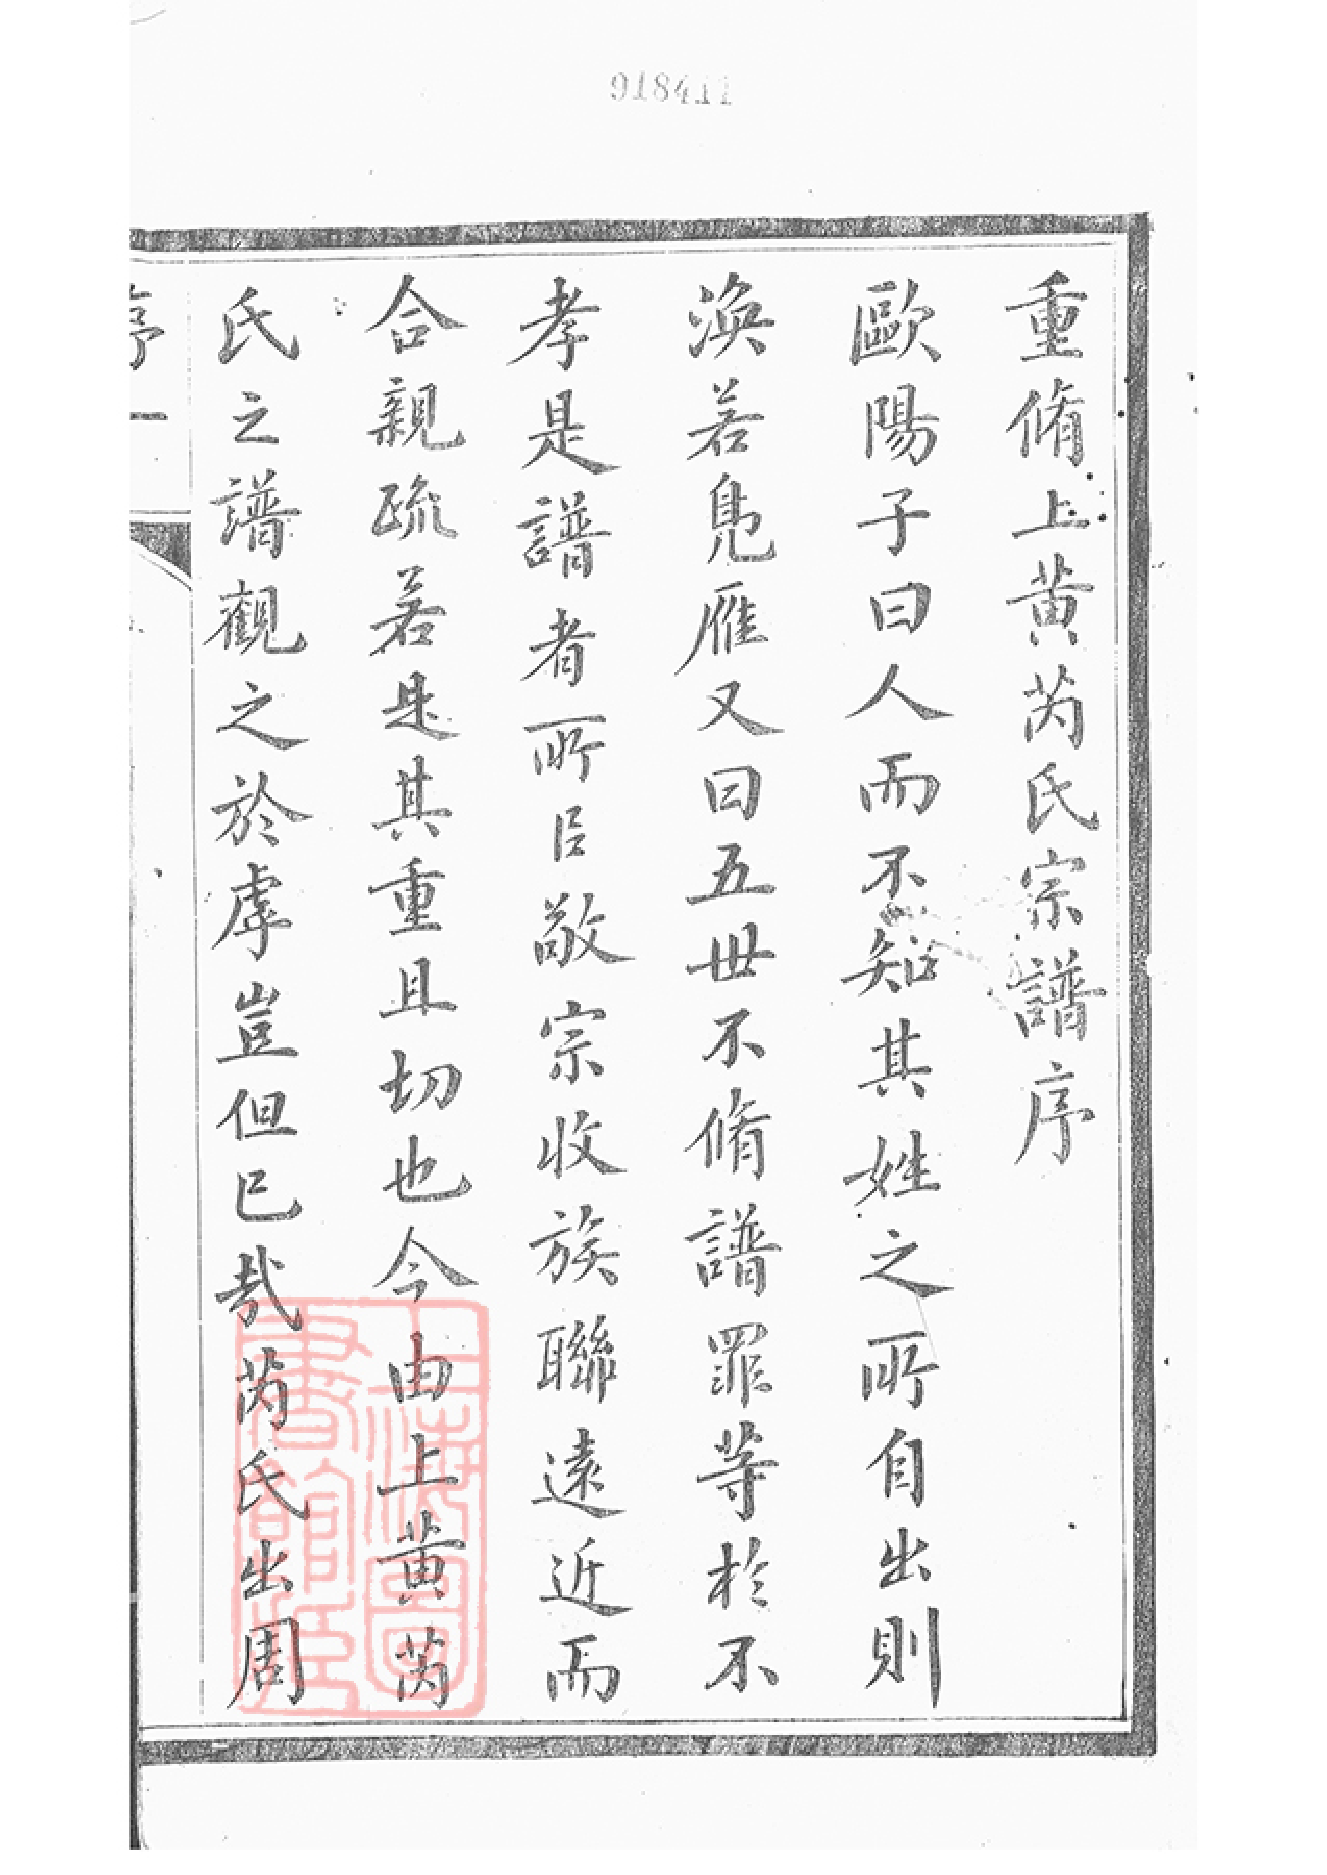 918411
重脩上黄芮氏宗譜序
歐陽子曰人而不知其姓之所自出則
渙若鳧雁又曰五世不脩譜罪等於不
孝是譜者所㠯敬宗收族聯遠近而
合親疏若是其重且切也今由上黄芮
氏之譜觀之於虖豈但已哉芮氏出周
序 一
上海圖書館藏